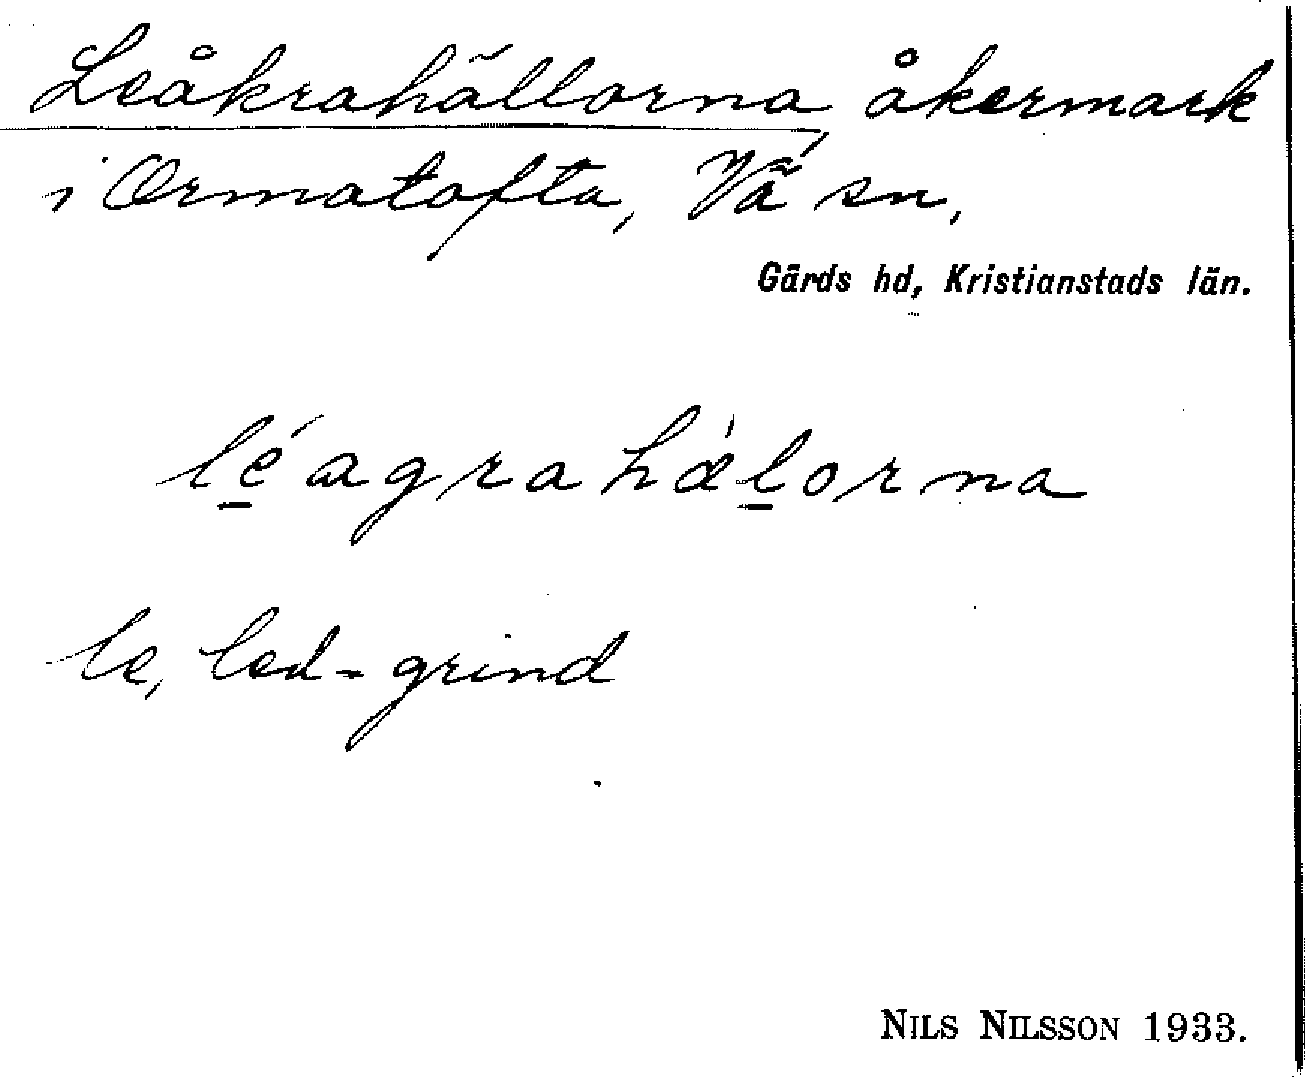 Leåkrahällorna, åkermark
i Ormatofta, Vä sn,
Gärds hd, Kristianstads län.
lé̱agrahæ̀ḻorna
le, led-grind
NILS NILSSON 1933.